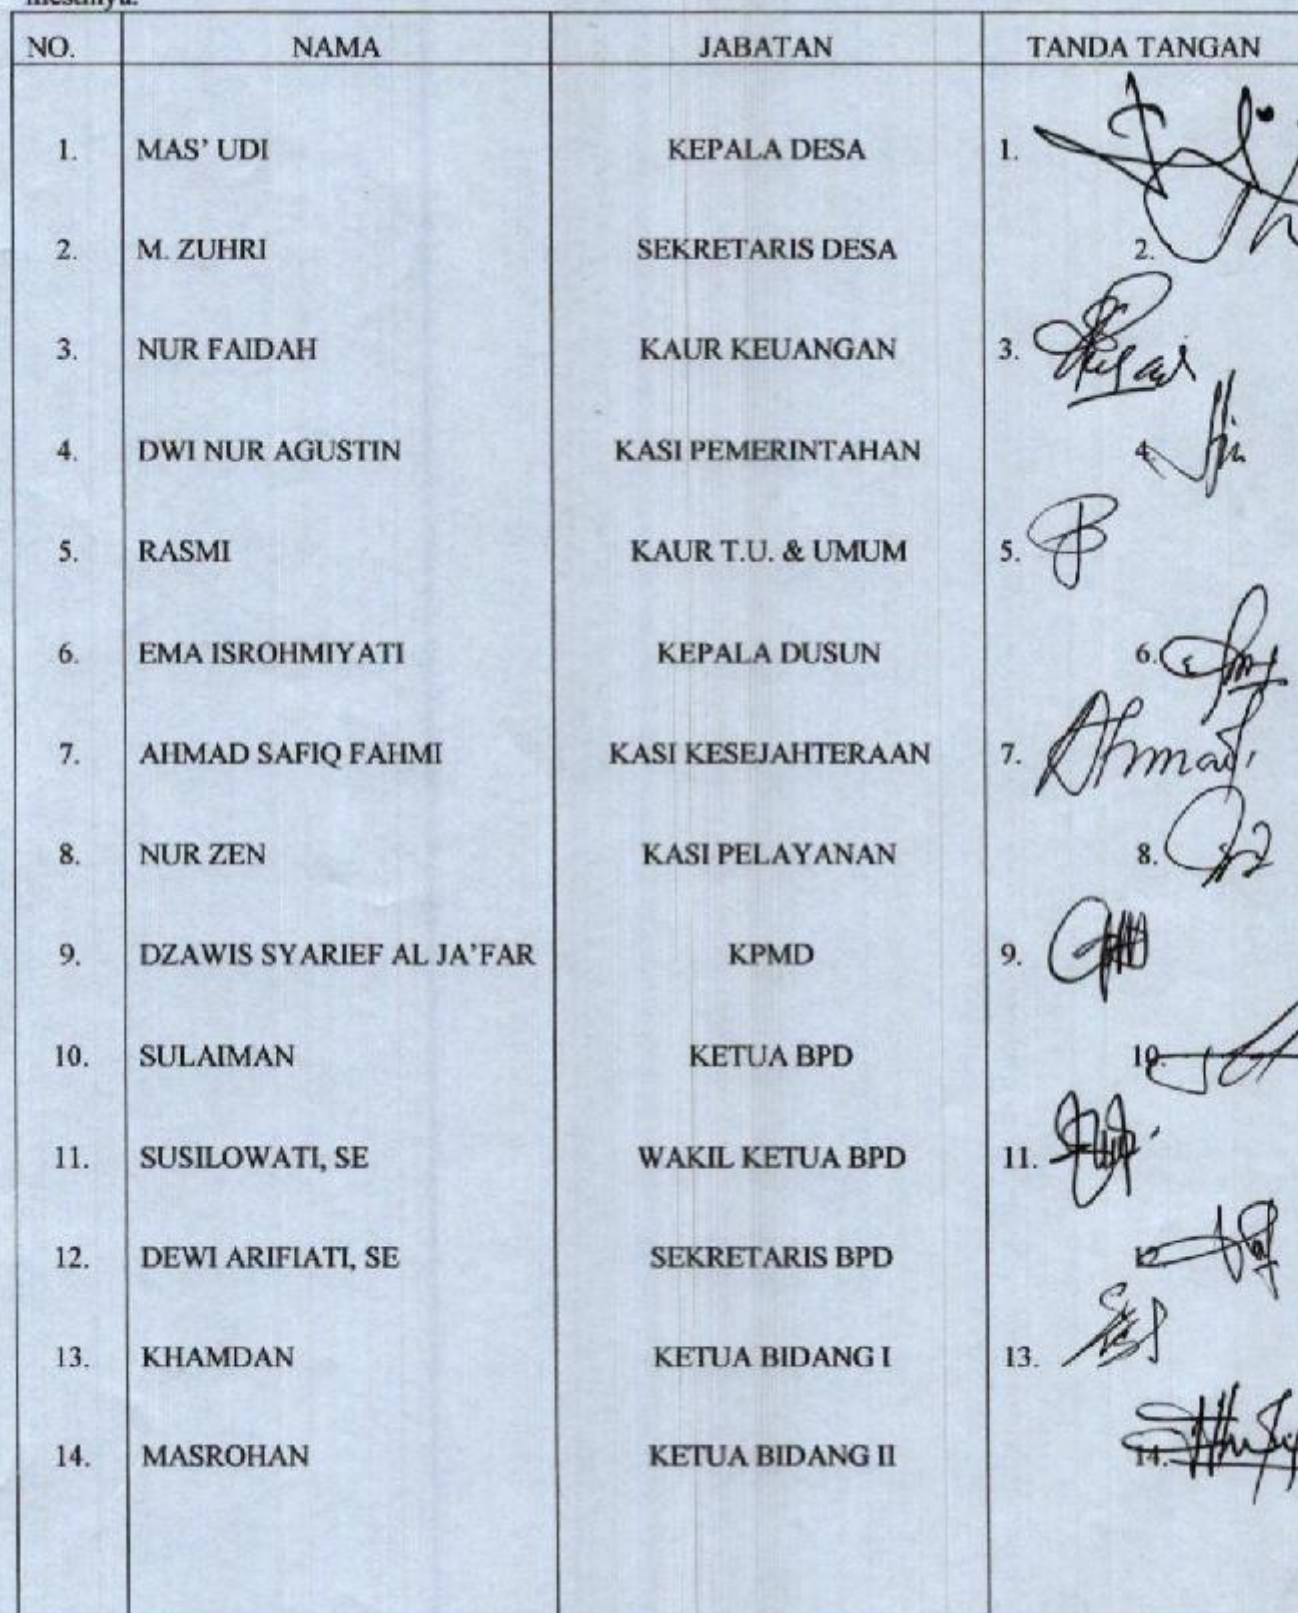 NO. NAMA JABATAN TANDA TANGAN
1. MAS' UDI KEPALA DESA 1.
2. M. ZUHRI SEKRETARIS DESA 2.
3. NUR FAIDAH KAUR KEUANGAN 3.
4. DWI NUR AGUSTIN KASI PEMERINTAHAN 4.
5. RASMI KAUR T.U. & UMUM 5.
6. EMA ISROHMIYATI KEPALA DUSUN 6.
7. AHMAD SAFIQ FAHMI KASI KESEJAHTERAAN 7. Ahmad
8. NUR ZEN KASI PELAYANAN 8.
9. DZAWIS SYARIEF AL JA'FAR KPMD 9.
10. SULAIMAN KETUA BPD 10.
11. SUSILOWATI, SE WAKIL KETUA BPD 11.
12. DEWI ARIFIATI, SE SEKRETARIS BPD 12.
13. KHAMDAN KETUA BIDANG I 13.
14. MASROHAN KETUA BIDANG II 14.